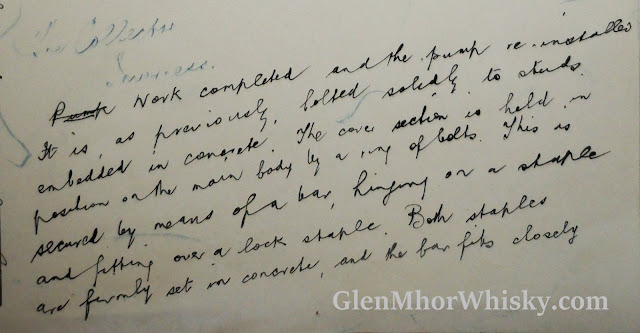 The Collector
Inverness.
Pump Work completed and the pump re-installed
It is, as previously, bolted solidly to studs
embedded in concrete. The cover section is held in
position on the main body by a ring of bolts. This is
secured by means of a bar, hinging on a staple
and fitting over a lock staple. Both staples
are firmly set in concrete, and the bar fits closely
GlenMhorWhisky.com